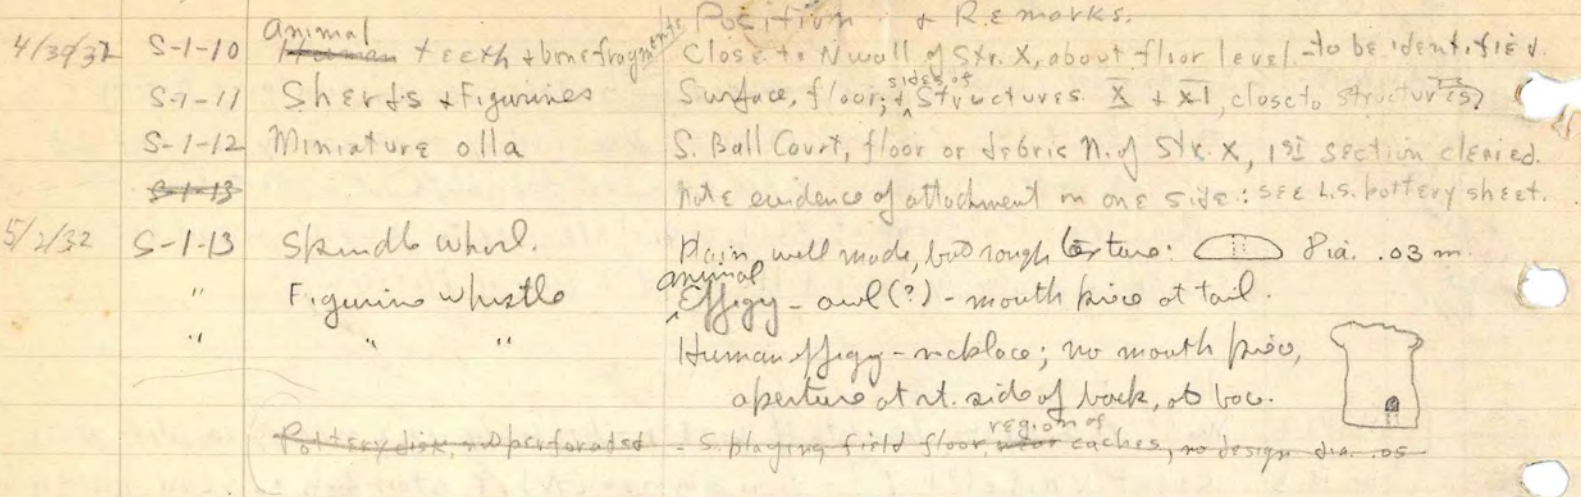 Position & Remarks.
4/30/32 S-1-10 Human Animal teeth & bone fragments Close to N wall of Str. X, about floor level - to be identified.
S-1-11 Sherds & Figurines Surface, floor; & sides of Structures X & XI, close to structure(s)
S-1-12 Miniature olla S. Ball Court, floor or debris N. of Str. X, 1st section cleared.
S-1-13 Note evidence of attachment on one side: see L.S. pottery sheet.
5/2/32 S-1-13 Spindle whorl. Plain, well made, but rough texture: Dia. .03 m.
" Figurine whistle animal Effigy - owl (?) - mouth piece at tail.
" " " Human effigy - necklace; no mouth piece,
aperture at rt. side of back, at base.
Pottery disk, not perforated - S. playing field floor, near region of caches, no design dia. .05